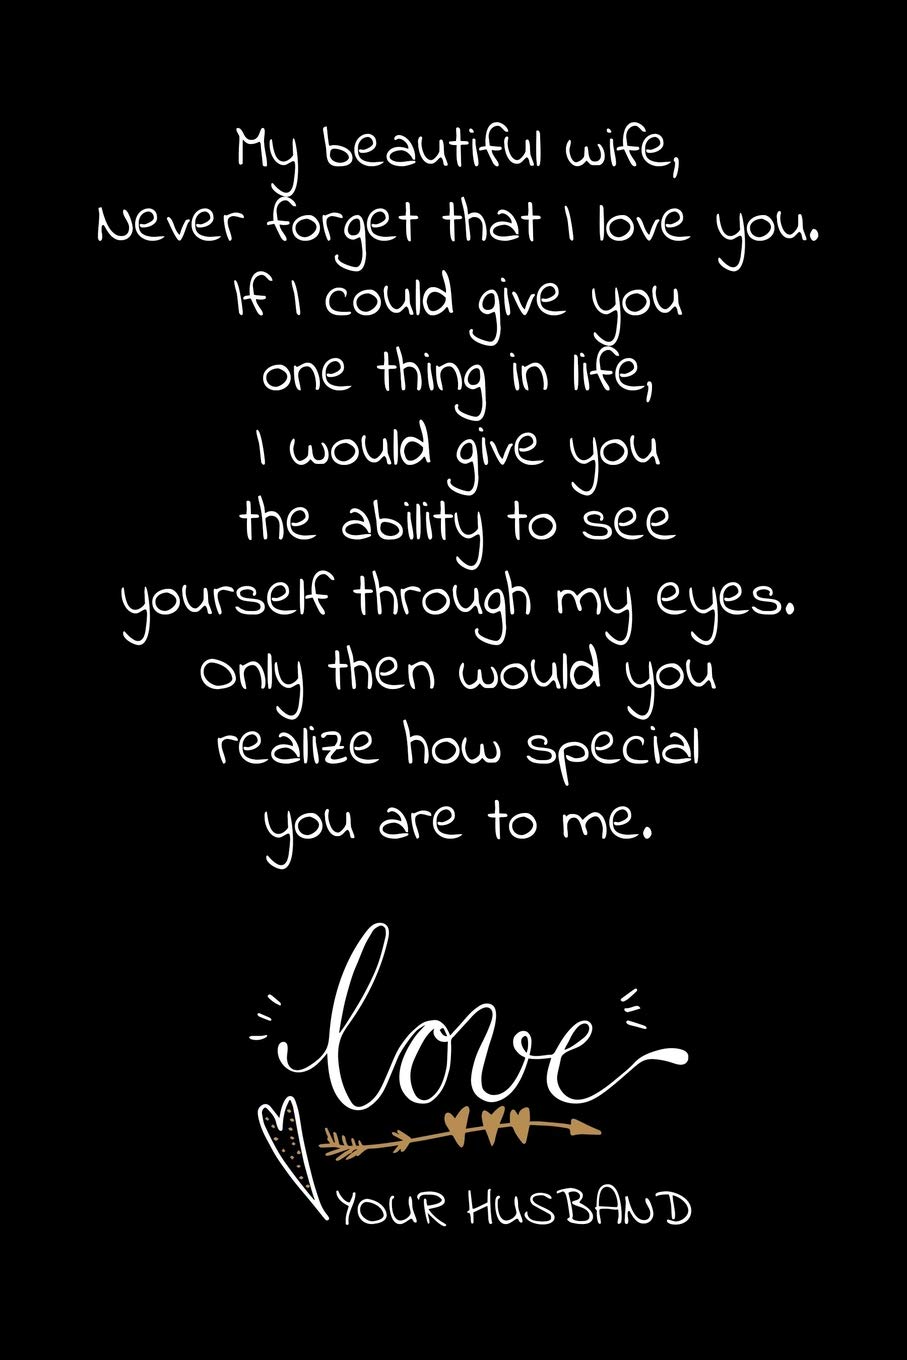 My beautiful wife,
Never forget that I love you.
If I could give you
one thing in life,
I would give you
the ability to see
yourself through my eyes.
Only then would you
realize how special
you are to me.
love
YOUR HUSBAND